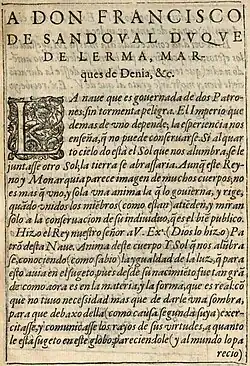 A DON FRANCISCO
DE SANDOVAL DVQVE
DE LERMA, MAR-
ques de Denia, &c.
LA nave que es governada de dos Patro-
nes; sin tormenta peligra. El Imperio que
demas de uno depende; la esperiencia nos
enseña, q̃ no puede conservarse. Si al quar
to cielo do està el Sol que nos alumbra, se le
juntasse otro Sol, la tierra se abrassaria. Aunq̃ este Rey-
no, y Monarquia parece imagen de muchos cuerpos, no
es mas q̃ uno, y sola vna anima la q̃ lo govierna, y rige,
quãdo vnidos los miẽbros (como estan) atiẽden, y miran
solo a la conservacion de su individuo, q̃ es el biẽ publico.
Hizo el Rey nuestro señor a V. Ex. (Dios lo hizo) Pa
trõ desta Nave. Anima deste cuerpo Y Sol q̃ nos alũbra.
Esconociendo (como sabio) la ygualdad de la luz, q̃ para
esto avia en el sugeto, pues desde su nacimiẽto fue tan grã
de como aora es en la materia, y la forma, que es realço
que no tuvo necesidad mas que de darle vna sombra,
para que debaxo della (como causa segunda suya) exer-
citasse, y comunicasse los rayos de sus virtudes, a quanto
le està sugeto en este globo: pareciendole (y al mundo lo pa
recio)